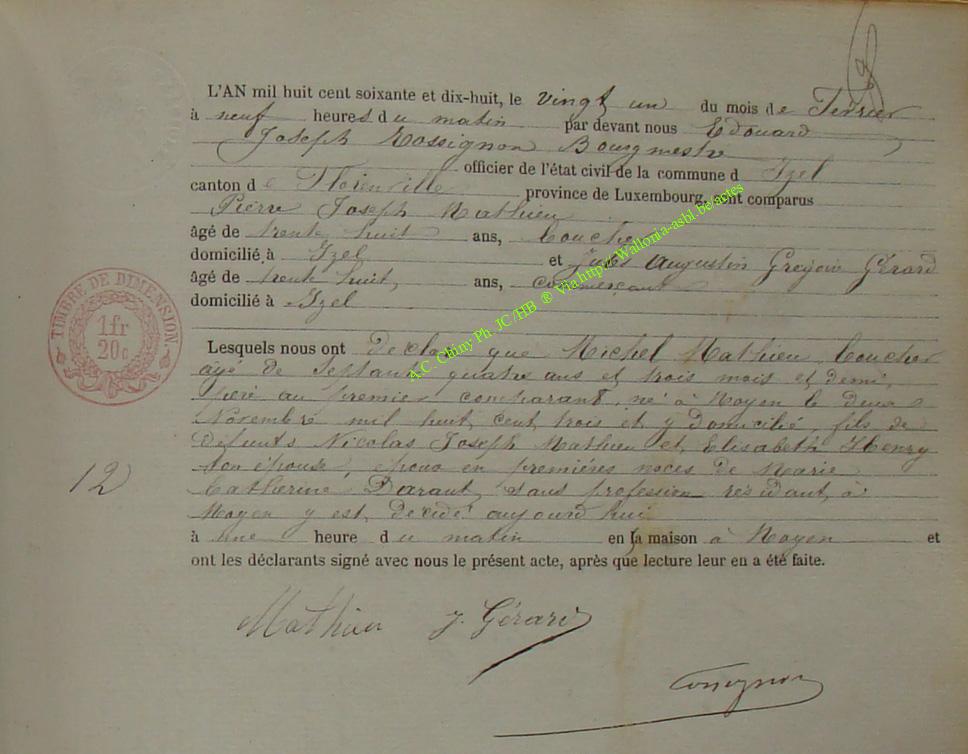 L'AN mil huit cent soixante et dix-huit, le vingt un du mois de Fevrier
à neuf heures du matin par devant nous Edouard
Joseph Rossignon Bourgmestre
officier de l'état civil de la commune d Izel
canton de Florenville province de Luxembourg, sont comparus
Pierre Joseph Mathieu
âgé de trente huit ans,
domicilié à Izel et Jules Augustin Gregoire Gérard
âgé de trente huit, ans, commerçant
domicilié à Izel
Lesquels nous ont declaré que Michel Mathieu
agé de septante quatre ans et trois mois et demi,
père au premier comparant, né à Moyen le deux
Novembre mil huit cent trois et y domicilié, fils de
défunts Nicolas Joseph Mathieu et Elisabeth Henry
son épouse, époux en premières noces de Marie
Catherine sans profession résidant à
Moyen y est décédé aujourd'hui
à une heure du matin en la maison à Moyen et
ont les déclarants signé avec nous le présent acte, après que lecture leur en a été faite.
Mathieu J. Gérard
Rossignon
12
TIMBRE DE DIMENSION
1fr
20c
A.C. Chiny Ph. JC/HB ® Via http://Wallonia-asbl.be/actes